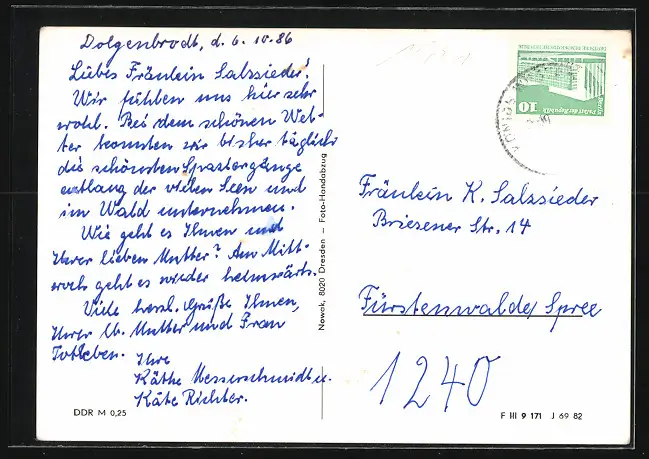 Dolgenbrodt, d. 6. 10. 86
Liebes Fräulein Salzsieder!
Wir fühlen uns hier sehr
wohl. Bei dem schönen Wet-
ter konnten wir bisher täglich
die schönsten Spaziergänge
entlang der vielen Seen und
im Wald unternehmen.
Wie geht es Ihnen und
Ihrer lieben Mutter? Am Mitt-
woch geht es wieder heimwärts.
Viele herzl. Grüße Ihnen,
Ihrer lb. Mutter und Frau
Totleben.
Ihre
Käthe Messerschmidt u.
Käte Richter.
DDR M 0,25
Nowak, 8020 Dresden – Foto-Handabzug
10
Palast der Republik
Fräulein K. Salzsieder
Briesener Str. 14
Fürstenwalde/Spree
1240
F III 9 171 J 69 82